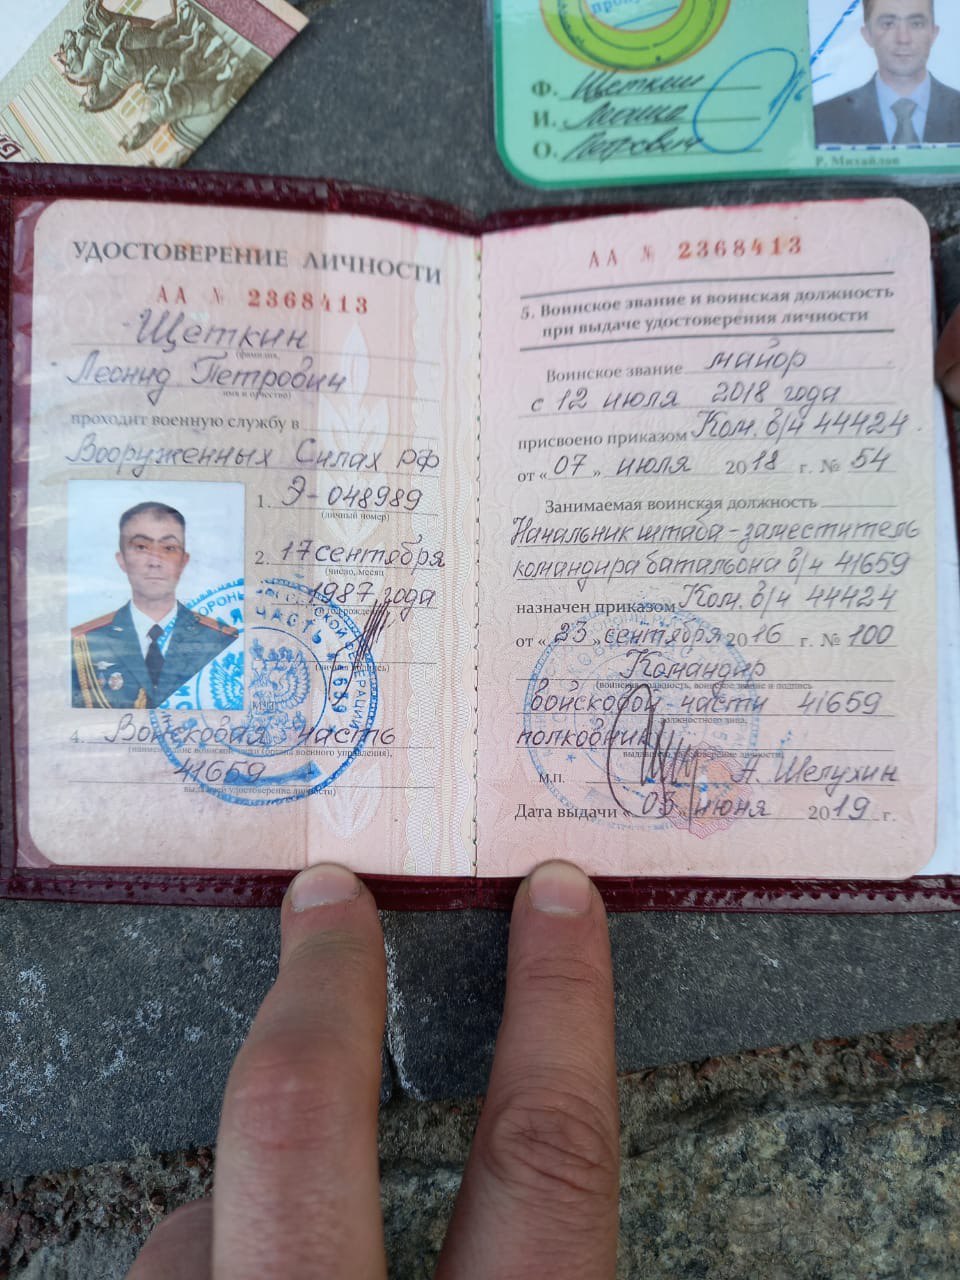 Ф. Щеткин
И. Леонид
О. Петрович
Р. Михайлов
УДОСТОВЕРЕНИЕ ЛИЧНОСТИ
АА № 2368413
Щеткин
(фамилия,
Леонид Петрович
имя и отчество)
проходит военную службу в
Вооруженных Силах РФ
1. Э-048989
(личный номер)
2. 17 сентября
(число, месяц
1987 года
(личная подпись)
4. Войсковая часть
41659
АА № 2368413
5. Воинское звание и воинская должность
при выдаче удостоверения личности
Воинское звание майор
с 12 июля 2018 года
присвоено приказом Ком. в/ч 44424
от «07» июля 2018 г. № 54
Занимаемая воинская должность
Начальник штаба - заместитель
командира батальона в/ч 41659
назначен приказом Ком. в/ч 44424
от «23» сентября 2016 г. № 100
Командир
(воинская должность, воинское звание и подпись
войсковой части 41659
должностного лица,
полковник
выдавшего удостоверение личности)
М.П. А. Шелухин
Дата выдачи «05» июня 2019 г.